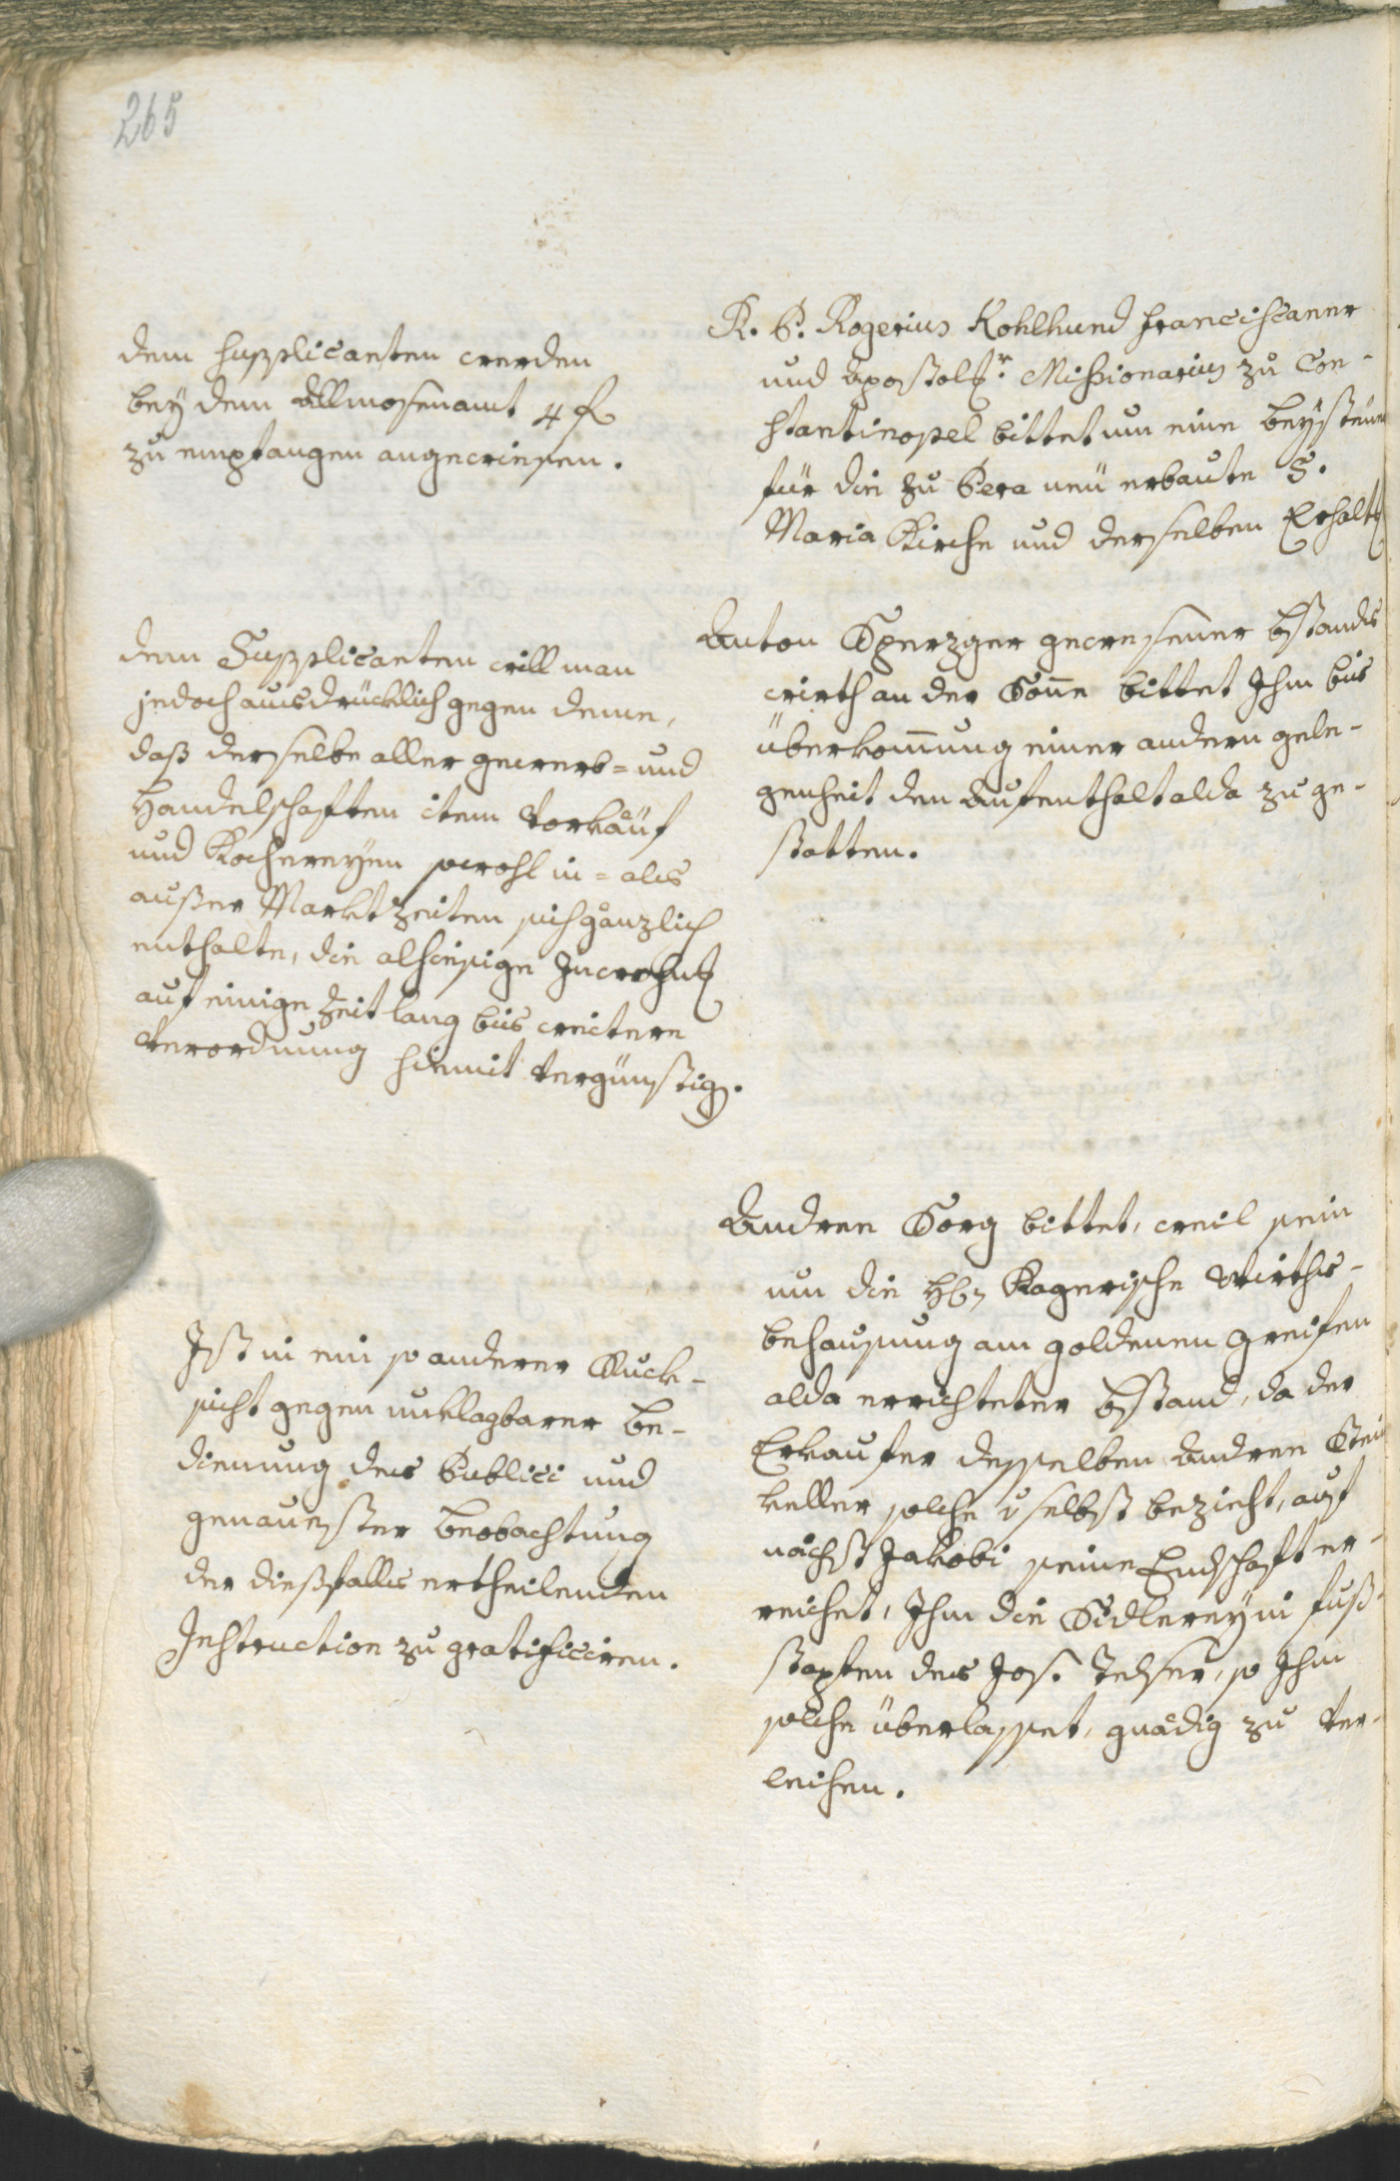 265
R. P. Rogerius Kohlhund Franciscaner
und Apostol: Missionarius zu Con-
stantinopel bittet um eine Beysteur
für die zu Pera neü erbaute S.
Maria Kirche und derselben Erhaltg
dem supplicanten werden
bey dem Allmosenamt 4 f
zu empfangen angewiesen.
Anton Sperzger gewesener Bstands
wirth an der Soñe bittet Ihm bis
überkom̃ung einer andern gele-
genheit den Aufenthalt alda zu ge-
statten.
dem Supplicanten will man
jedoch ausdrücklich gegen deme,
daß derselbe aller gewerb- und
Handelschaften item Vorkäuf
und Kochereyen sowohl in- als
außer Marktzeiten sich gänzlich
enthalte, die alhiesige Inwohng
auf einige Zeit lang bis weitere
Verordnung hiemit vergünstig.
Andree Sorg bittet, weil sein
um die Kagerische Wirths-
behausung am goldenen Greifen
alda errichteter Bstand, da der
Erkaufer desselben Andree Stei
keller solche selbst bezieht, auf
nächst Jakobi seine Endschaft er-
reichet, Ihm die Sidlerey in fuß-
stapfen des Jos. Telser, so Ihm
solche überlasset, gnädig zu ver-
leihen.
Ist in ein so anderer Ruck-
sicht gegen unklagbarer Be-
dienung des Publici und
genauester Beobachtung
der dießfalls ertheilenden
Instruction zu gratificiren.